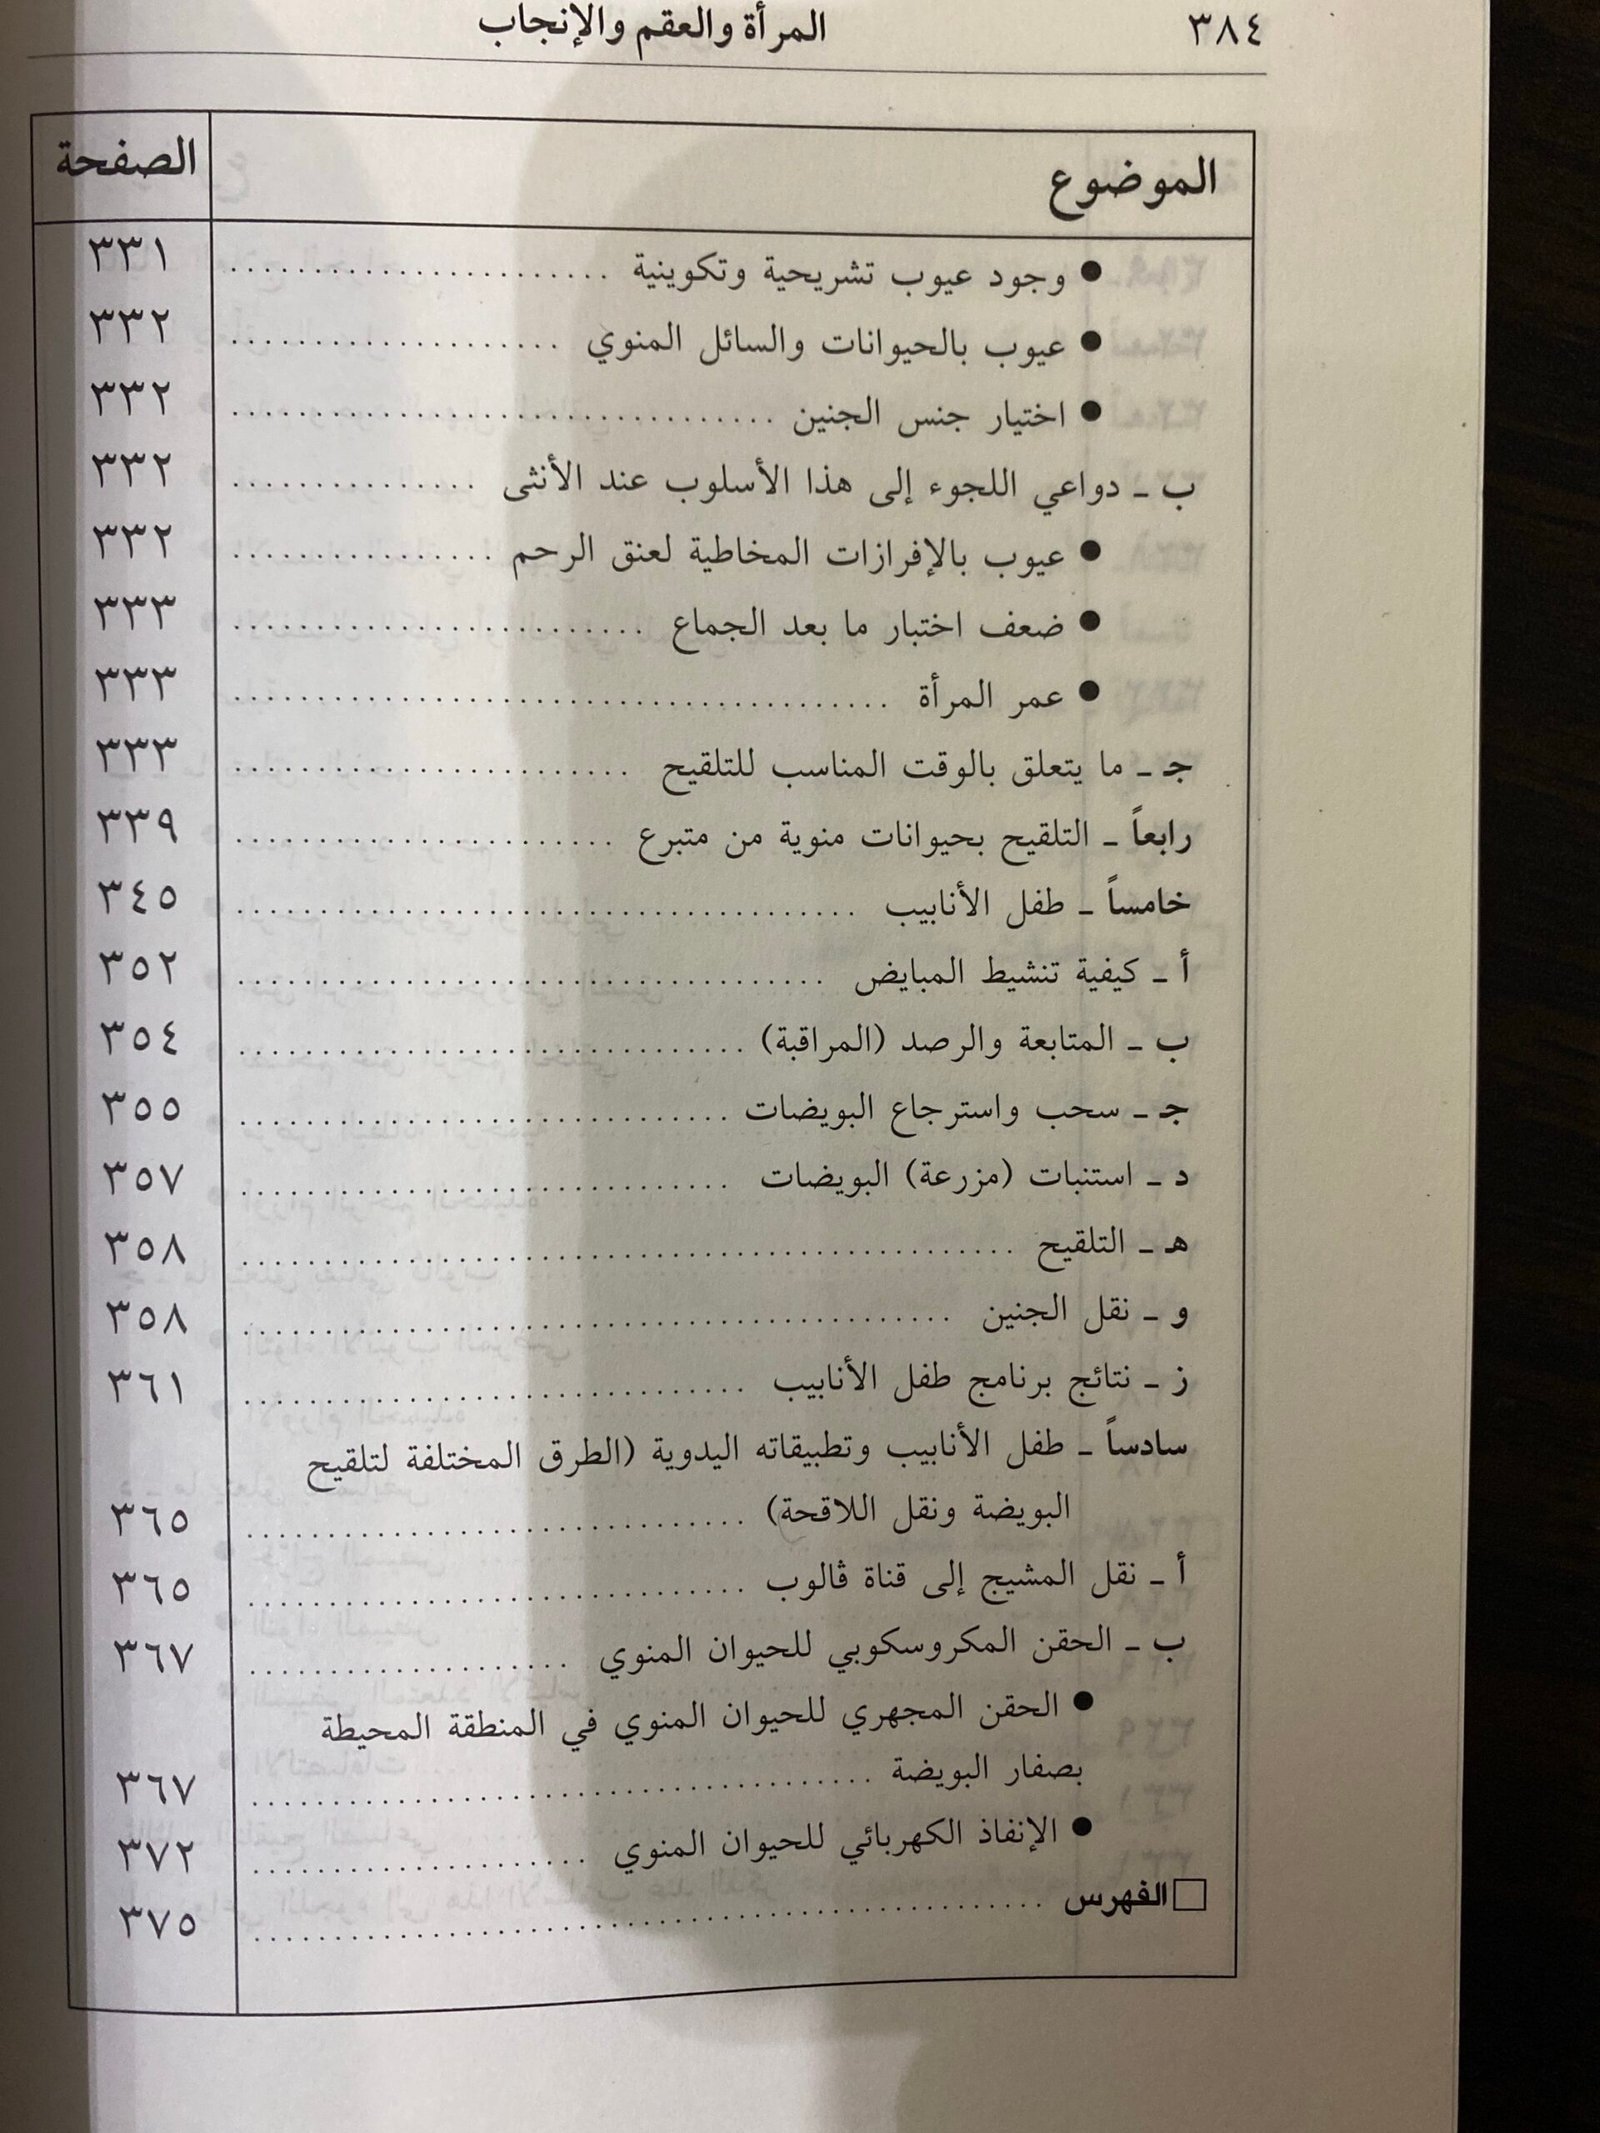 ٣٨٤ المرأة والعقم والإنجاب
الموضوع الصفحة
● وجود عيوب تشريحية وتكوينية ........................ ٣٣١
● عيوب بالحيوانات والسائل المنوي ..................... ٣٣٢
● اختيار جنس الجنين .................................. ٣٣٢
ب ـ دواعي اللجوء إلى هذا الأسلوب عند الأنثى ................ ٣٣٢
● عيوب بالإفرازات المخاطية لعنق الرحم ................. ٣٣٢
● ضعف اختبار ما بعد الجماع .......................... ٣٣٣
● عمر المرأة ......................................... ٣٣٣
جـ ـ ما يتعلق بالوقت المناسب للتلقيح ......................... ٣٣٣
رابعاً ـ التلقيح بحيوانات منوية من متبرع ........................ ٣٣٩
خامساً ـ طفل الأنابيب ....................................... ٣٤٥
أ ـ كيفية تنشيط المبايض ..................................... ٣٥٢
ب ـ المتابعة والرصد (المراقبة) ................................ ٣٥٤
جـ ـ سحب واسترجاع البويضات ............................... ٣٥٥
د ـ استنبات (مزرعة) البويضات ............................... ٣٥٧
هـ ـ التلقيح ................................................. ٣٥٨
و ـ نقل الجنين ............................................. ٣٥٨
ز ـ نتائج برنامج طفل الأنابيب ................................ ٣٦١
سادساً ـ طفل الأنابيب وتطبيقاته اليدوية (الطرق المختلفة لتلقيح
البويضة ونقل اللاقحة) ................................ ٣٦٥
أ ـ نقل المشيج إلى قناة ڤالوب ................................ ٣٦٥
ب ـ الحقن المكروسكوبي للحيوان المنوي ..................... ٣٦٧
● الحقن المجهري للحيوان المنوي في المنطقة المحيطة
بصفار البويضة ....................................... ٣٦٧
● الإنفاذ الكهربائي للحيوان المنوي ...................... ٣٧٢
□ الفهرس ................................................... ٣٧٥